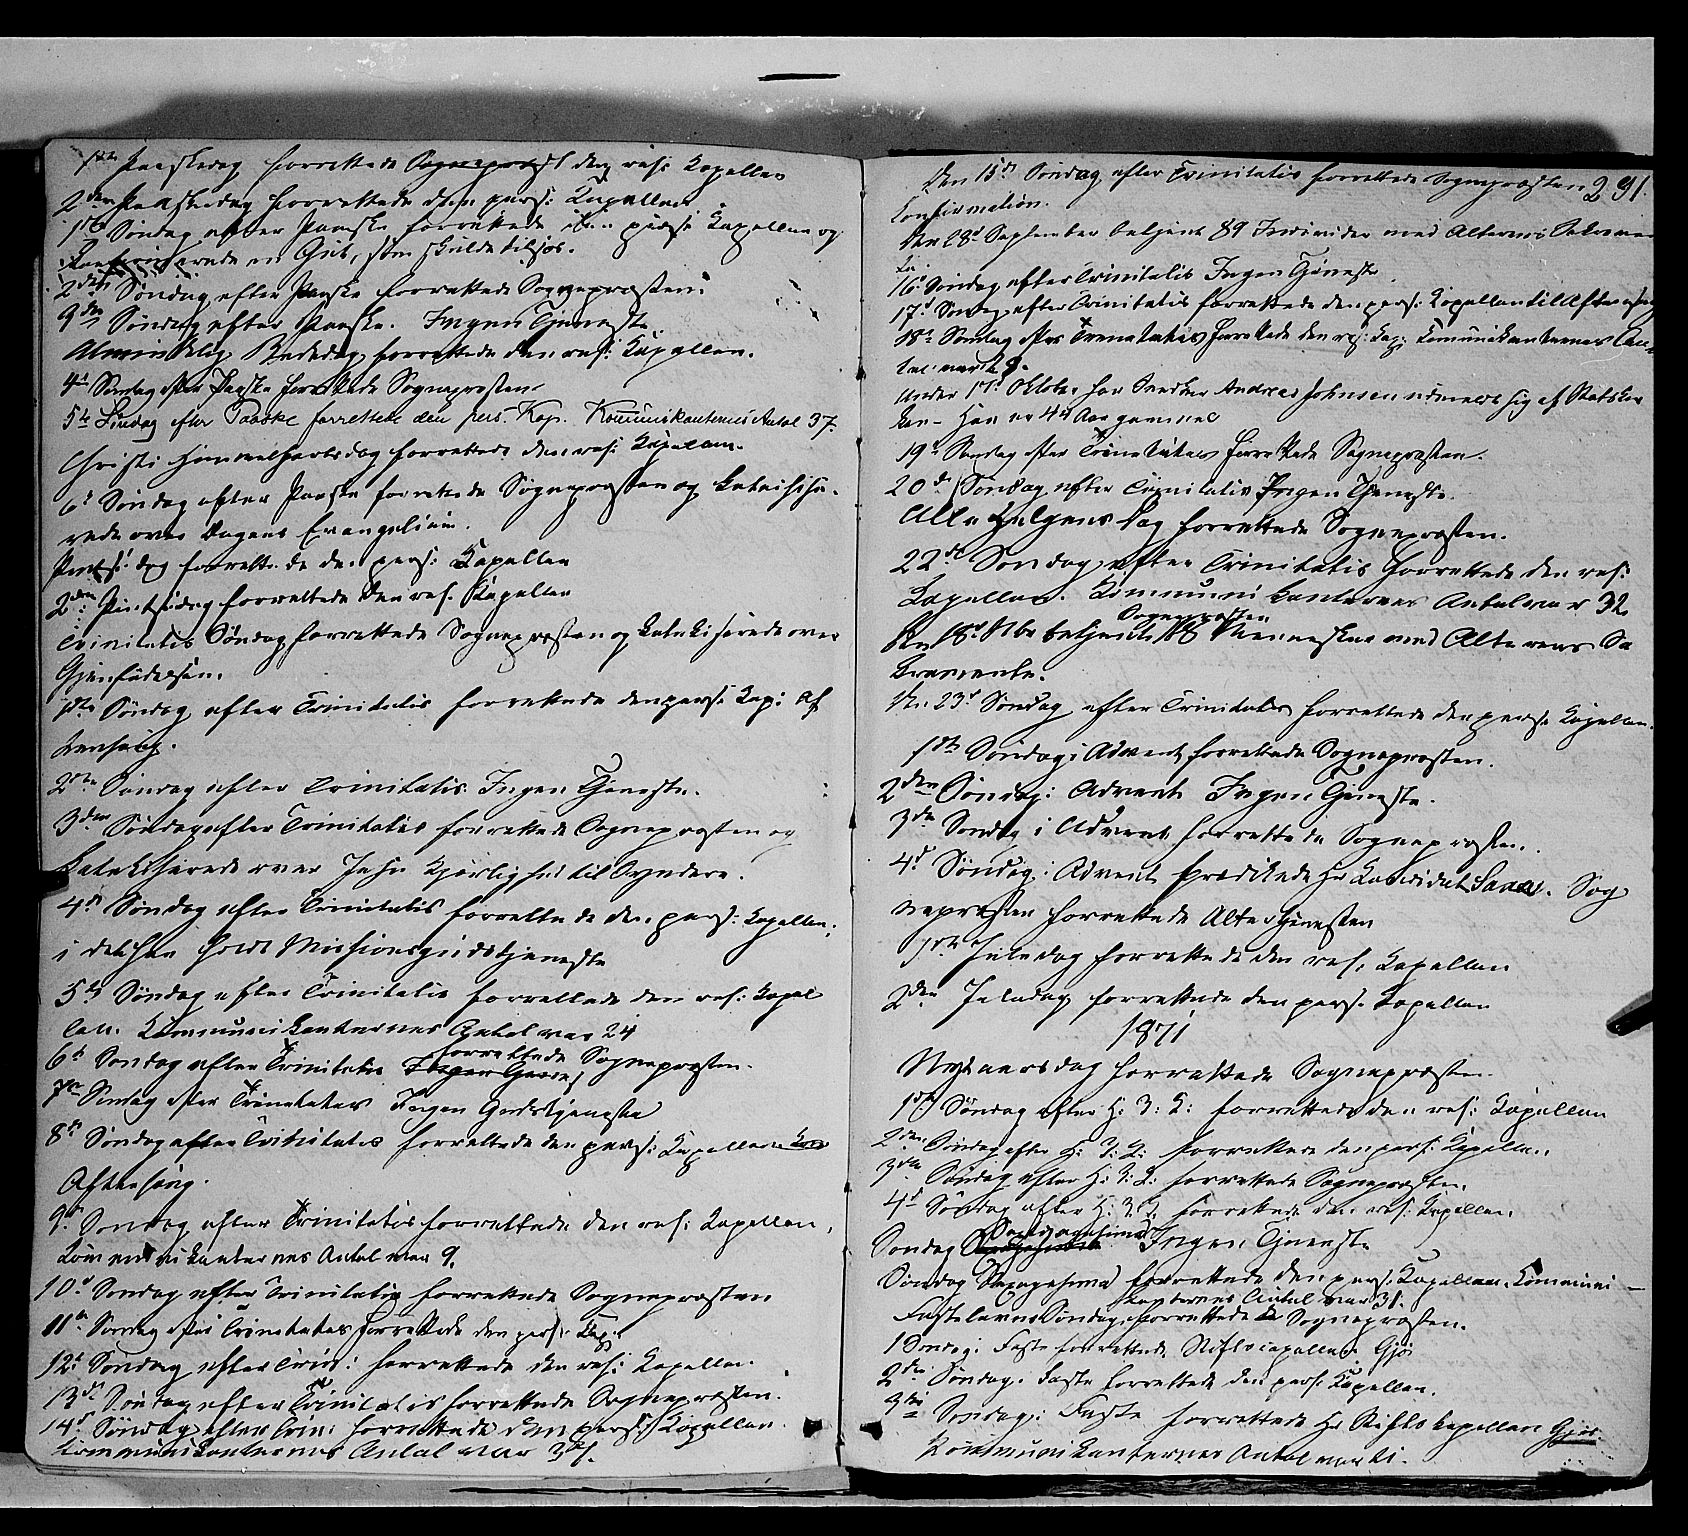 1ste Paaskedag forrettede Sognepræst den res: Kapellan
2den Paaskedag forrettede den pers: Kapellan
1ste Søndag efter Paaske forrettede den pers: Kapellan og
en Gut, som skulde tilsjøs.
2den Søndag efter Paaske forrettede Sognepræsten.
3den Søndag efter Paaske. Ingen Tjeneste.
Almindelig Bededag forrettede den res: Kapellan.
4de Søndag efter Paaske forrettede Sognepræsten.
5te Søndag efter Paaske forrettede den pers. Kap. Kommunikanternes Antal 37.
Christi Himmelfartsdag forrettede den res: Kapellan.
6te Søndag efter Paaske forrettede Sognepræsten og katechise-
rede over Dagens Evangelium.
Pintsedag forrettede den pers: Kapellan
2den Pintsedag forrettede den res. Kapellan
Trinitatis Søndag forrettede Sognepræsten og katekiserede over
Gjenfødelsen.
1ste Søndag efter Trinitatis forrettede den pers: Kap: Af
tensang.
2den Søndag efter Trinitatis Ingen Tjeneste.
3den Søndag efter Trinitatis forrettede Sognepræsten og
katekiserede over Jesu Kjærlighed til Syndere.
4de Søndag efter Trinitatis forrettede den pers: Kapellan,
idethan holdt Missionsgudstjeneste
5te Søndag efter Trinitatis forrettede den res: Kapel
lan. Kommunikanternes Antal var 24
forrettede
6te Søndag efter Trinitatis Ingen Sognepræsten.
7de Søndag efter Trinitatis Ingen Gudstjeneste
8de Søndag efter Trinitatis forrettede den pers: Kapellan
Aftensang.
9de Søndag efter Trinitatis forrettede den res: Kapellan,
Kommunikanternes Antal var 9.
10de Søndag efter Trinitatis forrettede Sognepræsten
11te Søndag efter Trinitatis forrettede den pers: Kap.
12te Søndag efter Trin: forrettede den res: Kapellan.
13de Søndag efter Trinitatis forrettede Sognepræsten.
14de Søndag efter Trin: forrettede den pers: Kapellan.
Kommunikanternes Antal var
Den 15de Søndag efter Trinitatis forrettede Sognepræsten 291.
Confirmation.
Den 28de September betjent 89 Individer med Alterens Sakramen
te.
16de Søndag efter Trinitatis Ingen Tjeneste.
17de Søndag efter Trinitatis forrettede den pers: Kapellan til Aftensang
18de Søndag efter Trinitatis forrettede den res: Kap: Kommunikanternes An-
tal var
Under 17de Oktober har Andreas Johnsen udmeldt sig af Statskir
ken - Han er 44 Aar gammel
19de Søndag efter Trinitatis forrettede Sognepræsten.
20de Søndag efter Trinitatis Ingen Tjeneste.
Alle Helgens Dag forrettede Sognepræsten.
22de Søndag efter Trinitatis forrettede den res:
Kapellan. Kommunikanternes Antal var 32
Sognepræsten
Den 18de Nbr betjente 18 Mennesker med Alterens Sa
kramente.
Den 23de Søndag efter Trinitatis forrettede den pers: Kapellan.
1ste Søndag i Advent forrettede Sognepræsten.
2den Søndag i Advent Ingen Tjeneste.
3die Søndag i Advent forrettede Sognepræsten.
4de Søndag i Advent prædikede Hr Kandidat Saxe. Sog
nepræsten forrettede Altertjenesten
1ste Juledag forrettede den res. Kapellan
2den Juledag forrettede den pers. Kapellan
1871
Nytaarsdag forrettede Sognepræsten.
1ste Søndag efter H: 3: K: forrettede den res: Kapellan
2den Søndag efter H: 3: K: forrettede den pers: Kapellan.
3die Søndag efter H: 3: K: forrettede Sognepræsten.
4de Søndag efter H: 3: K: forrettede den res: Kapellan.
Septuagesima
Søndag Ingen Tjeneste
Søndag Sexagesima forrettede den pers: Kapellan. Kommuni-
kanternes Antal var 31.
Fastelavns Søndag forrettede Sognepræsten.
1 Søndag i Faste forrettede Stiftskapellan Gjør
2den Søndag i Faste forrettede den pers: Kapellan.
3die Søndag i Faste forrettede Hr Stiftskapellan Gjør.
Kommunikanternes Antal var